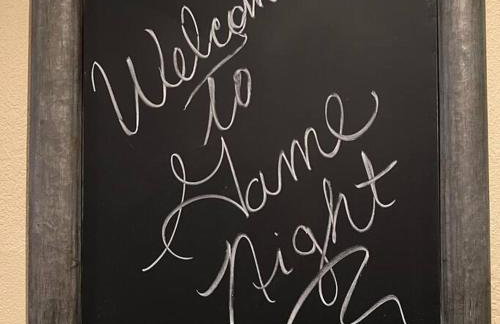 Welcome
To
Game
Night